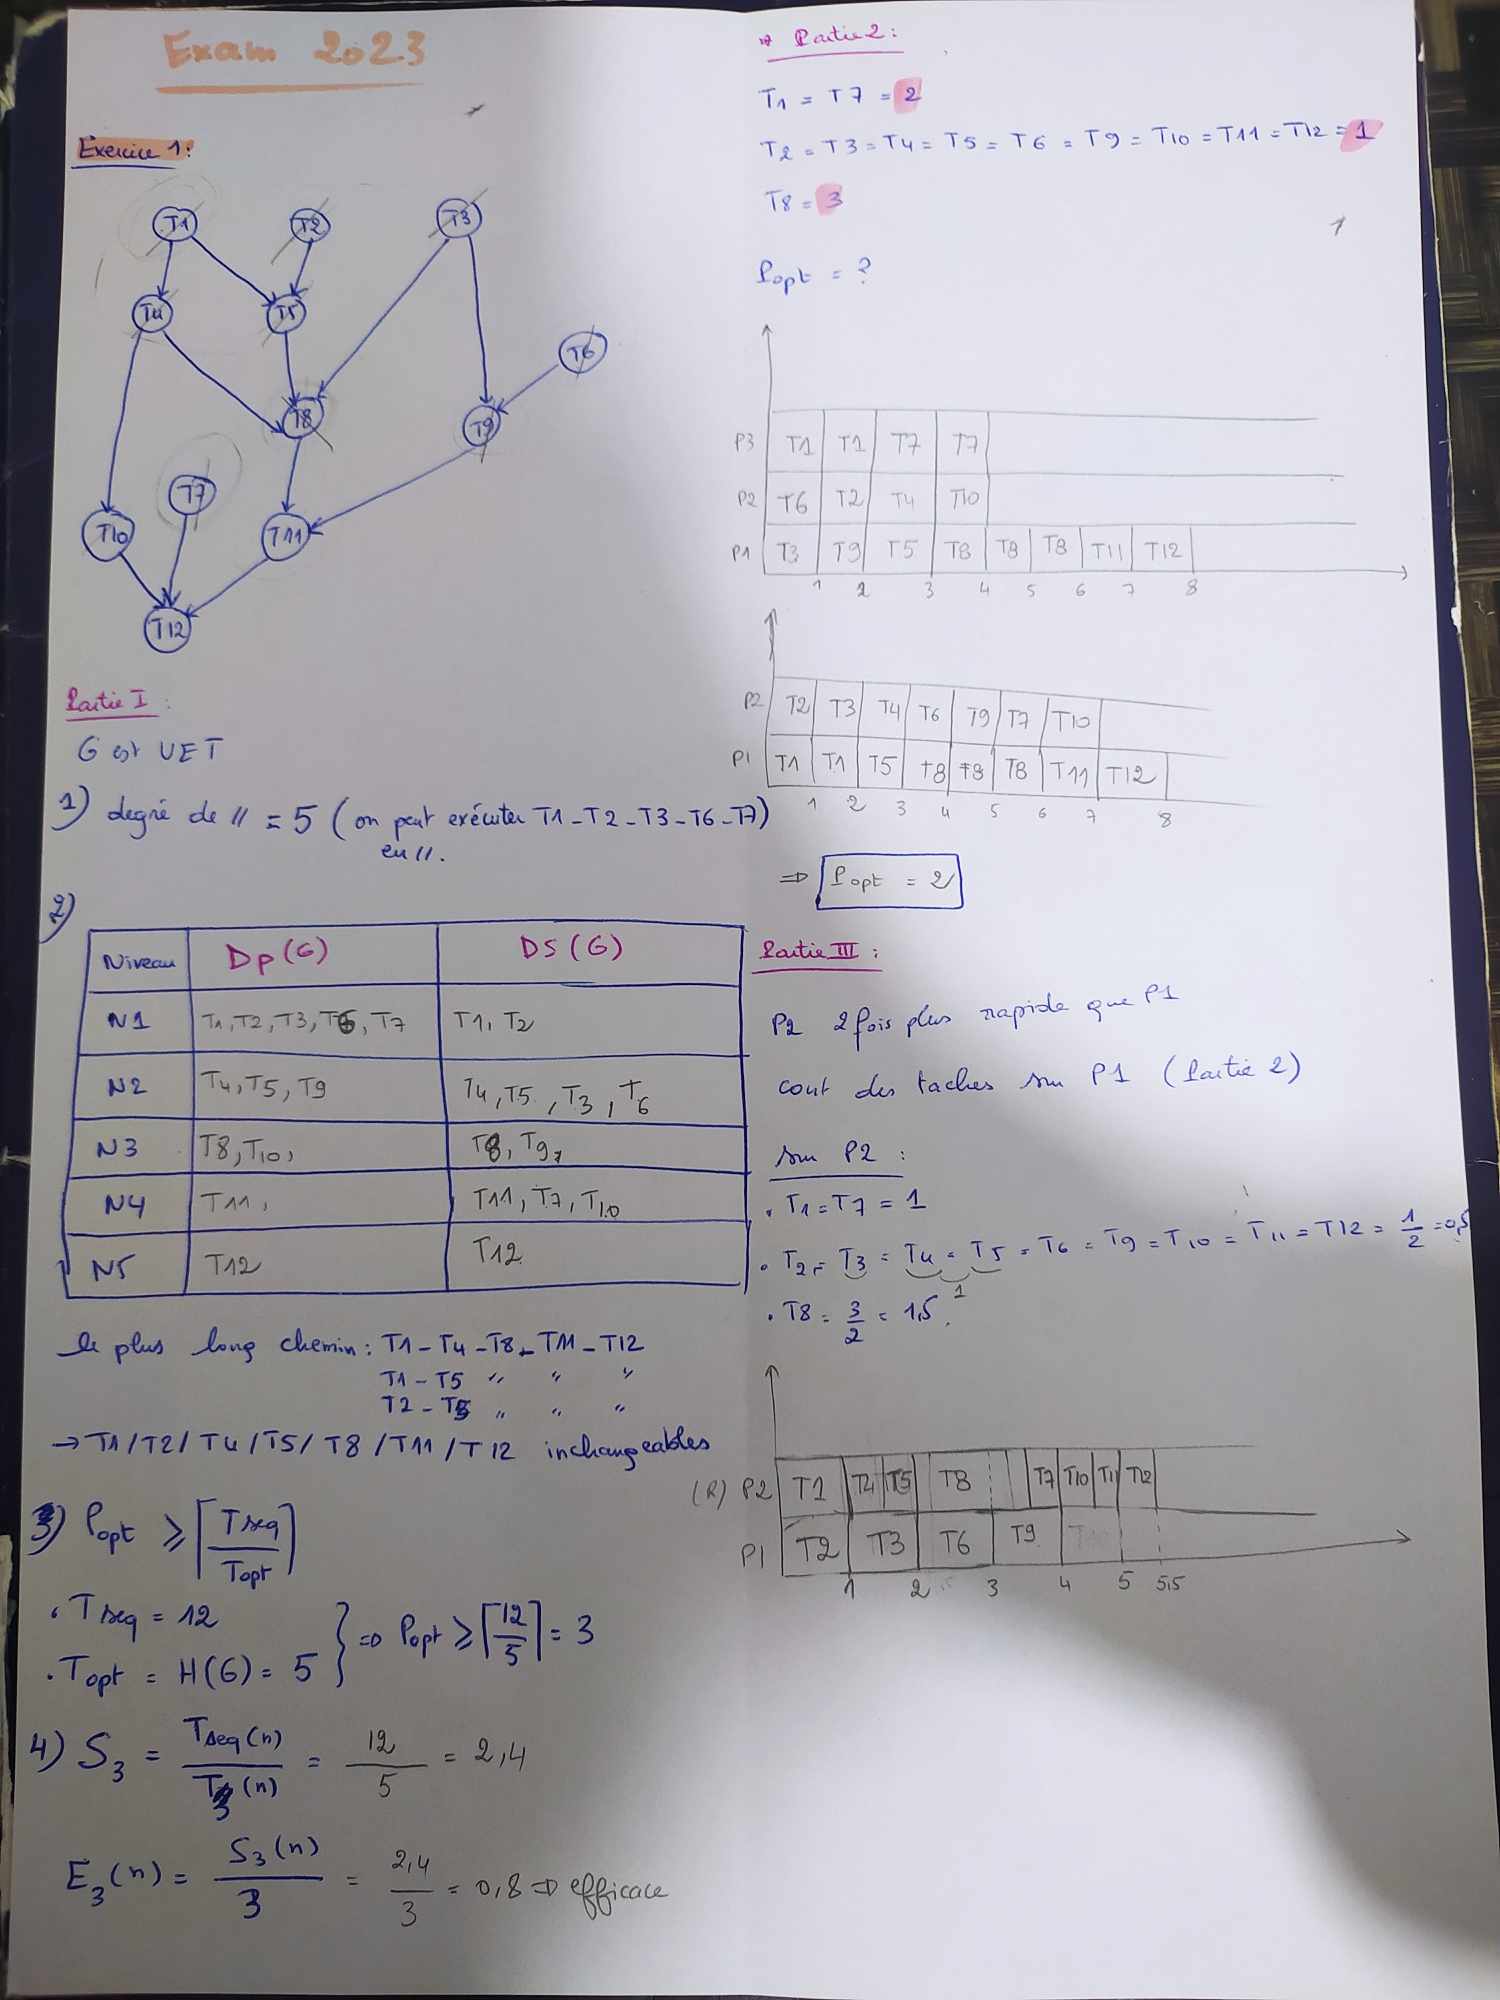 Exam 2023
Exercice 1:
T1 T2 T3
T4 T5 T6
T8 T9
T7
T10 T11
T12
Partie I :
G est UET
1) degré de // = 5 (on peut exécuter T1-T2-T3-T6-T7)
en //.
2)
Niveau Dp(G) DS(G)
N1 T1, T2, T3, T6, T7 T1, T2
N2 T4, T5, T9 T4, T5, T3, T6
N3 T8, T10, T8, T9,
N4 T11, T11, T7, T10
N5 T12 T12
le plus long chemin: T1-T4-T8-T11-T12
T1-T5 " " "
T2-T5 " " "
→ T1/T2/T4/T5/T8/T11/T12 inchangeables
3) Popt ≥ ⌈Tseq/Topt⌉
• Tseq = 12
• Topt = H(G) = 5 } => Popt ≥ ⌈12/5⌉ = 3
4) S3 = Tseq(n)/T3(n) = 12/5 = 2,4
E3(n) = S3(n)/3 = 2,4/3 = 0,8 => efficace
Partie 2:
T1 = T7 = 2
T2 = T3 = T4 = T5 = T6 = T9 = T10 = T11 = T12 = 1
T8 = 3
1
Popt = ?
P3 T1 T1 T7 T7
P2 T6 T2 T4 T10
P1 T3 T9 T5 T8 T8 T8 T11 T12
1 2 3 4 5 6 7 8
P2 T2 T3 T4 T6 T9 T7 T10
P1 T1 T1 T5 T8 T8 T8 T11 T12
1 2 3 4 5 6 7 8
=> Popt = 2
Partie III :
P2 2 fois plus rapide que P1
cout des taches sur P1 (Partie 2)
sur P2 :
• T1 = T7 = 1
• T2 = T3 = T4 = T5 = T6 = T9 = T10 = T11 = T12 = 1/2 = 0,5
1
• T8 = 3/2 = 1,5.
(R) P2 T1 T4 T5 T8 T7 T10 T11 T12
P1 T2 T3 T6 T9
1 2 3 4 5 5,5